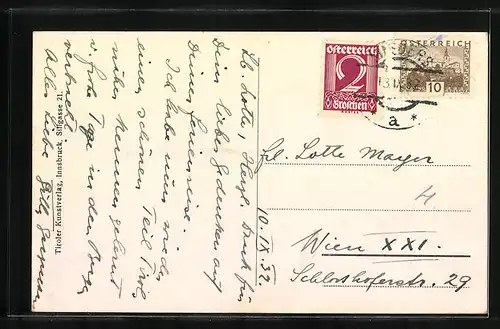 Lb. Lotte, Herzl. Dank für
Dein liebes Gedenken auf
Deiner Ferienreise.
Ich habe nun wieder
einen schönen Teil Tirols
näher kennen gelernt
u. frohe Tage in den Bergen
verbracht.
Alles Liebe
10. IX. 32.
Tiroler Kunstverlag, Innsbruck, Sillgasse 21.
Österreich
2
Groschen
ÖSTERREICH
10
* a *
Frl. Lotte Mayer
4
Wien XXI.
Schlosshoferstr. 29